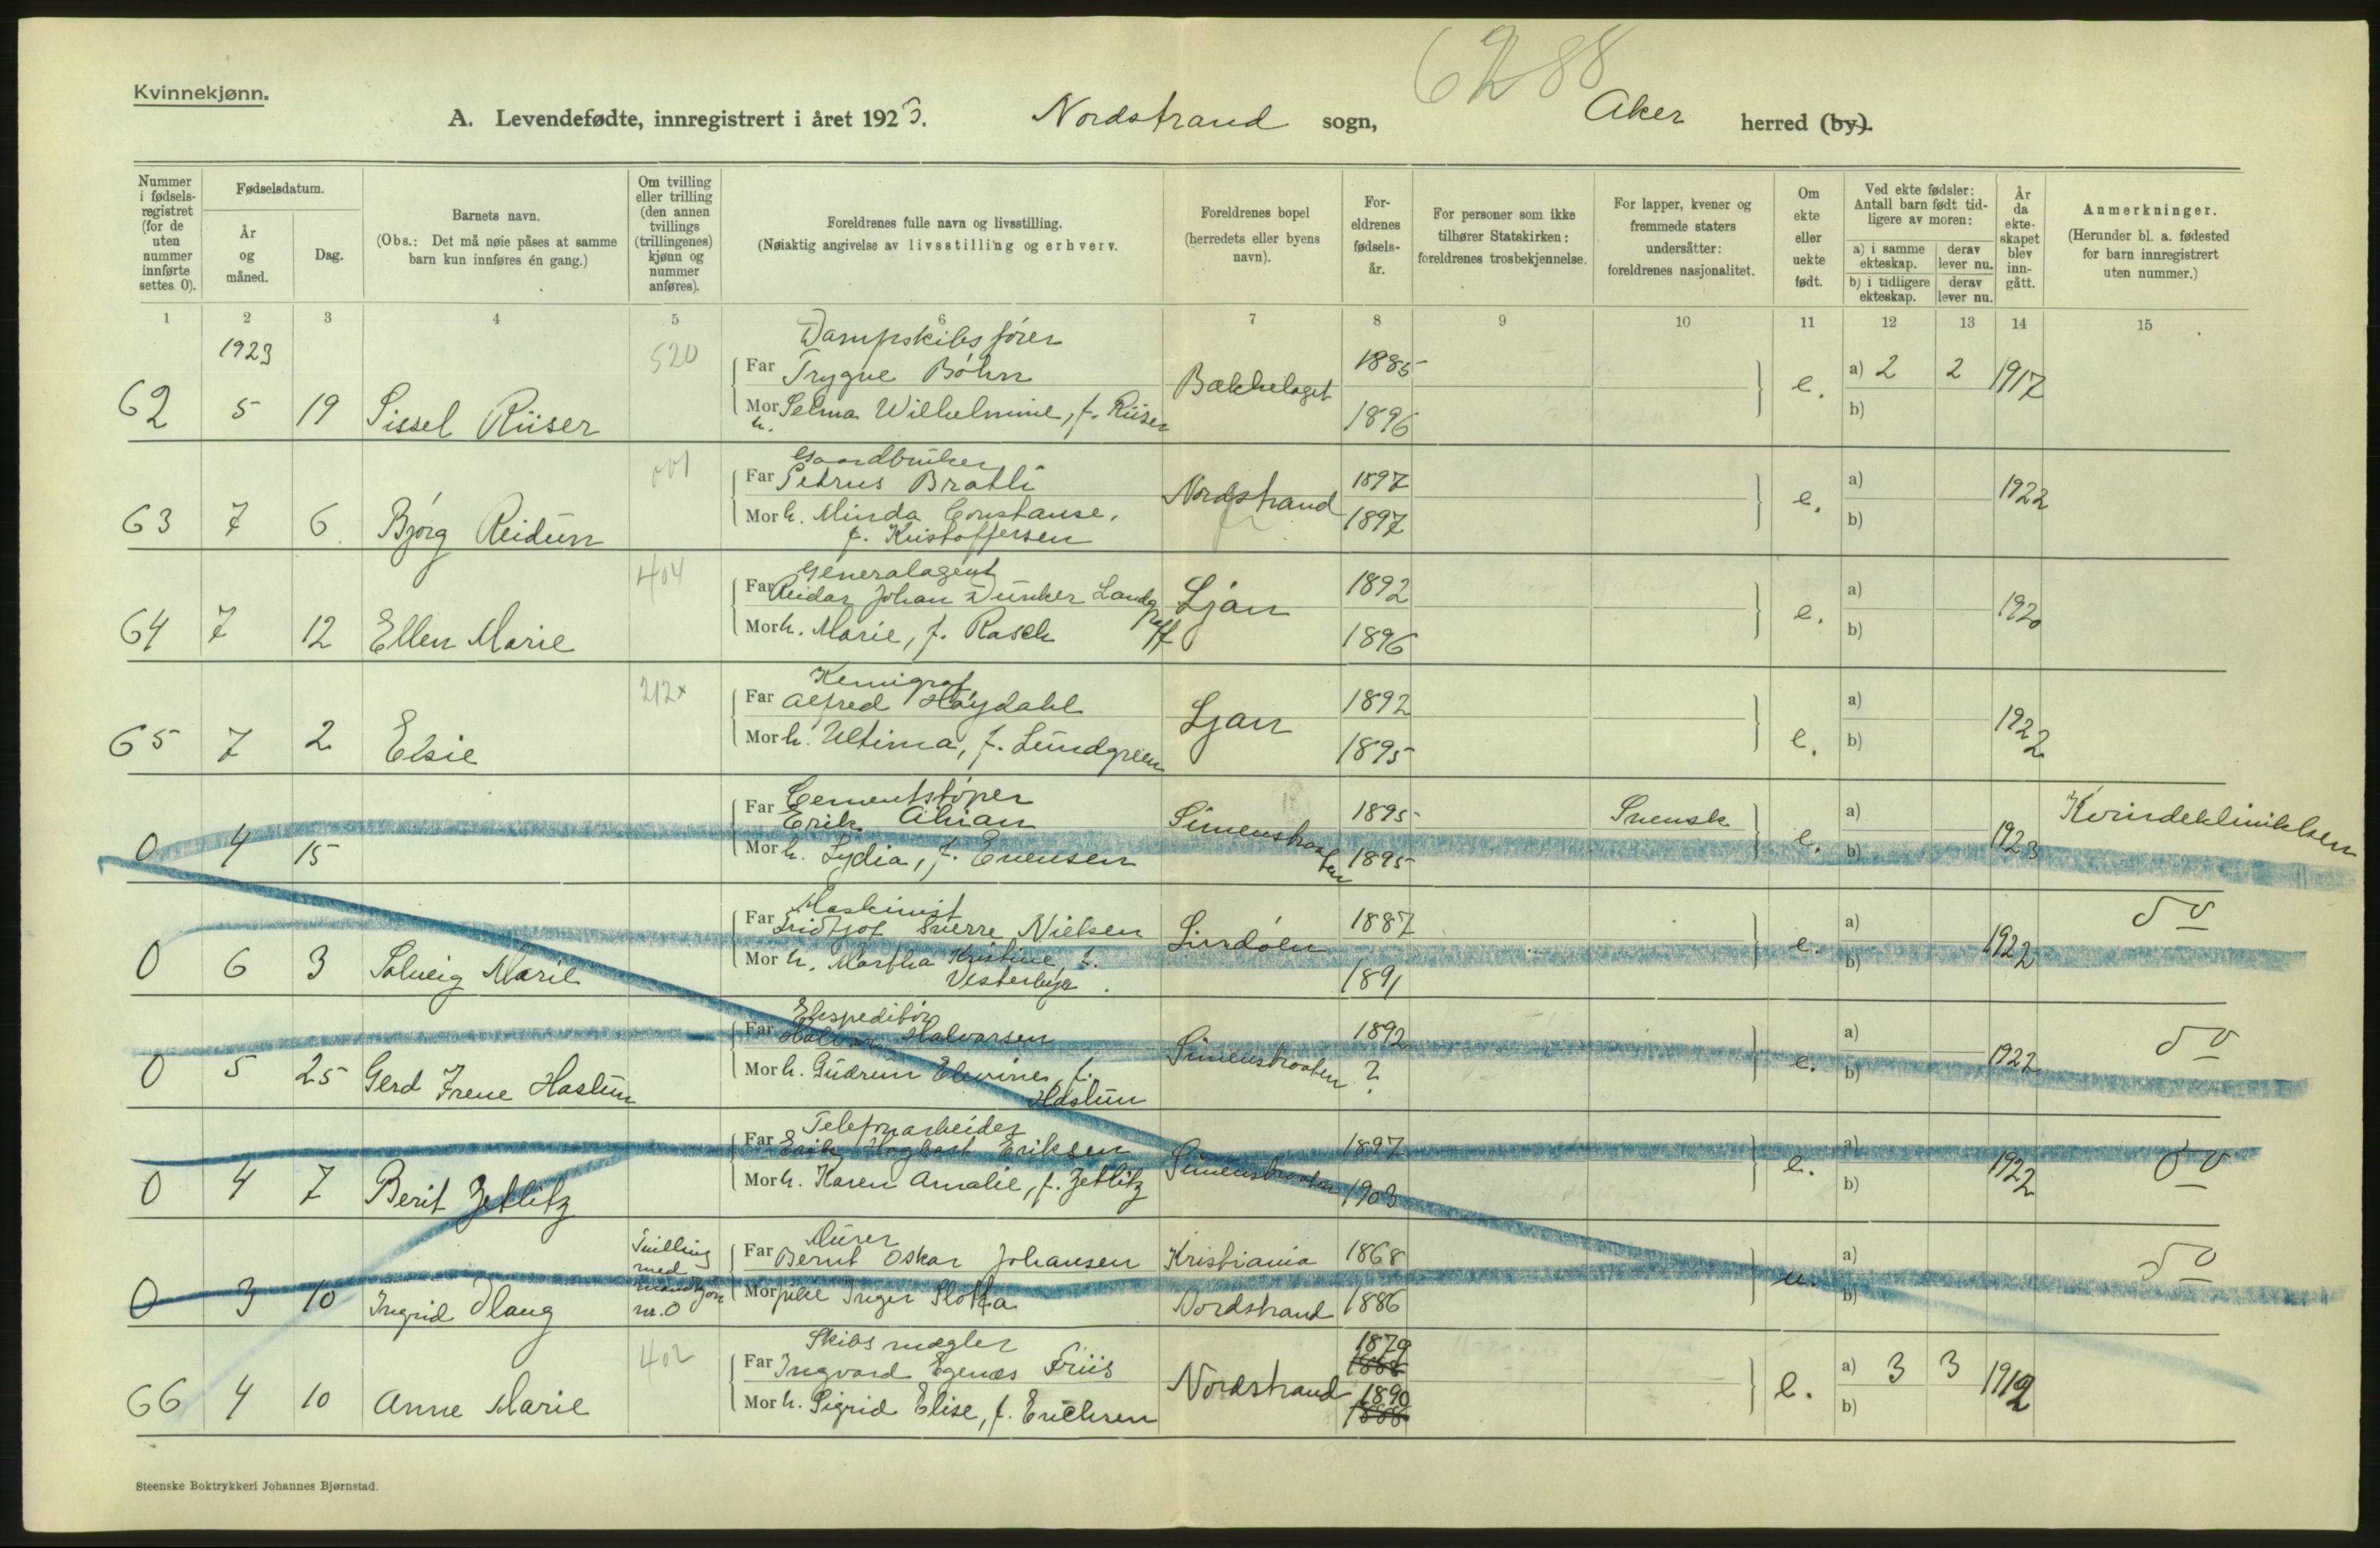 6288
Kvinnekjønn.
A. Levendefødte, innregistrert i året 1923. Nordstrand sogn, Aker herred (by).
Nummer i fødselsregistret (for de uten nummer innførte settes 0).
Fødselsdatum.
År og måned.
Dag.
Barnets navn.
(Obs.: Det må nøie påses at samme barn kun innføres én gang.)
Om tvilling eller trilling (den annen tvillings (trillingenes) kjønn og nummer anføres).
Foreldrenes fulle navn og livsstilling.
(Nøiaktig angivelse av livsstilling og erhverv.
Foreldrenes bopel (herredets eller byens navn).
Foreldrenes fødselsår.
For personer som ikke tilhører Statskirken: foreldrenes trosbekjennelse.
For lapper, kvener og fremmede staters undersåtter: foreldrenes nasjonalitet.
Om ekte eller uekte født.
Ved ekte fødsler: Antall barn født tidligere av moren:
a) i samme ekteskap.
derav lever nu.
b) i tidligere ekteskap.
derav lever nu.
År da ekteskapet blev inngått.
Anmerkninger.
(Herunder bl. a. fødested for barn innregistrert uten nummer.)
1 2 3 4 5 6 7 8 9 10 11 12 13 14 15
1923 520 Dampskibsfører
Far Trygve Bøhn 1885 a) 2 2
62 5 19 Sissel Riiser Mor h. Selma Wilhelmine, f. Riiser Bækkelaget 1896 e. b) 1917
001 Gaardbruker
Far Petrus Bratli 1897 a)
63 7 6 Bjørg Reidun Mor h. Minda Constanse, Nordstrand 1897 e. b) 1922
f. Kristoffersen
404 Generalagent
Far Reidar Johan Dunker Landgraff 1892 a)
64 7 12 Ellen Marie Mor h. Marie, f. Rasch Ljan 1896 e. b) 1920
212x Kemigraf
Far Alfred Høydahl 1892 a)
65 7 2 Elsie Mor h. Ultima, f. Lundgreen Ljan 1895 e. b) 1922
Cementstøper
Far Erik 1895 Svensk a) Kvindeklinikken
0 4 15 Mor h. Lydia, f. Evensen Simenstraaten 1895 e. b) 1923
Maskinist
Far Fridtjof Sverre Nielsen 1887 a) do
0 6 3 Solveig Marie Mor h. Martha Kristine f. 1891 e. b) 1922
Ekspeditør
Far Halvor Halvorsen 1892 a) do
0 5 25 Gerd Irene Haslum Mor h. Gudrun f. Simenstraaten ? e. b) 1922
Haslum
Telefonarbeider
Far Erik Hagbart Eriksen 1897 a) do
0 4 7 Berit Zetlitz Mor h. Karen Amalie, f. Zetlitz Simenstraaten 1903 e. b) 1922
Tvilling med mandkjøn nr. 0 Murer
Far Bernt Oskar Johansen Kristiania 1868 a) do
0 3 10 Ingrid Mor pike Inger Nordstrand 1886 u. b)
402 Skibsmægler
Far Ingvard Egenæs Friis 1879 1888 a) 3 3
66 4 10 Anne Marie Mor h. Sigrid Elise, f. Erichsen Nordstrand 1890 1888 e. b) 1912
Steenske Boktrykkeri Johannes Bjørnstad.